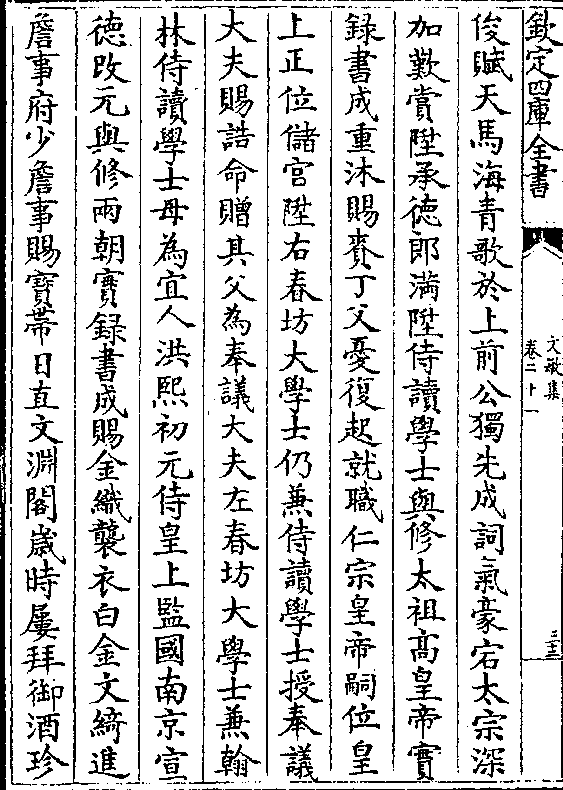 欽定四庫全書
文敏集
卷二十一
三十三
俊賦天馬海青歌於上前公獨先成詞氣豪宕太宗深
加歎賞陞承德郎滿陞侍讀學士與修太祖高皇帝實
録書成重沐賜賚丁父憂復起就職仁宗皇帝嗣位皇
上正位儲宫陞右春坊大學士仍兼侍讀學士授奉議
大夫賜誥命贈其父為奉議大夫左春坊大學士兼翰
林侍讀學士母為宜人洪熙初元侍皇上監國南京宣
德改元與修兩朝實録書成賜金織襲衣白金文綺進
詹事府少詹事賜寶帶日直文淵閣歲時屢拜御酒珍